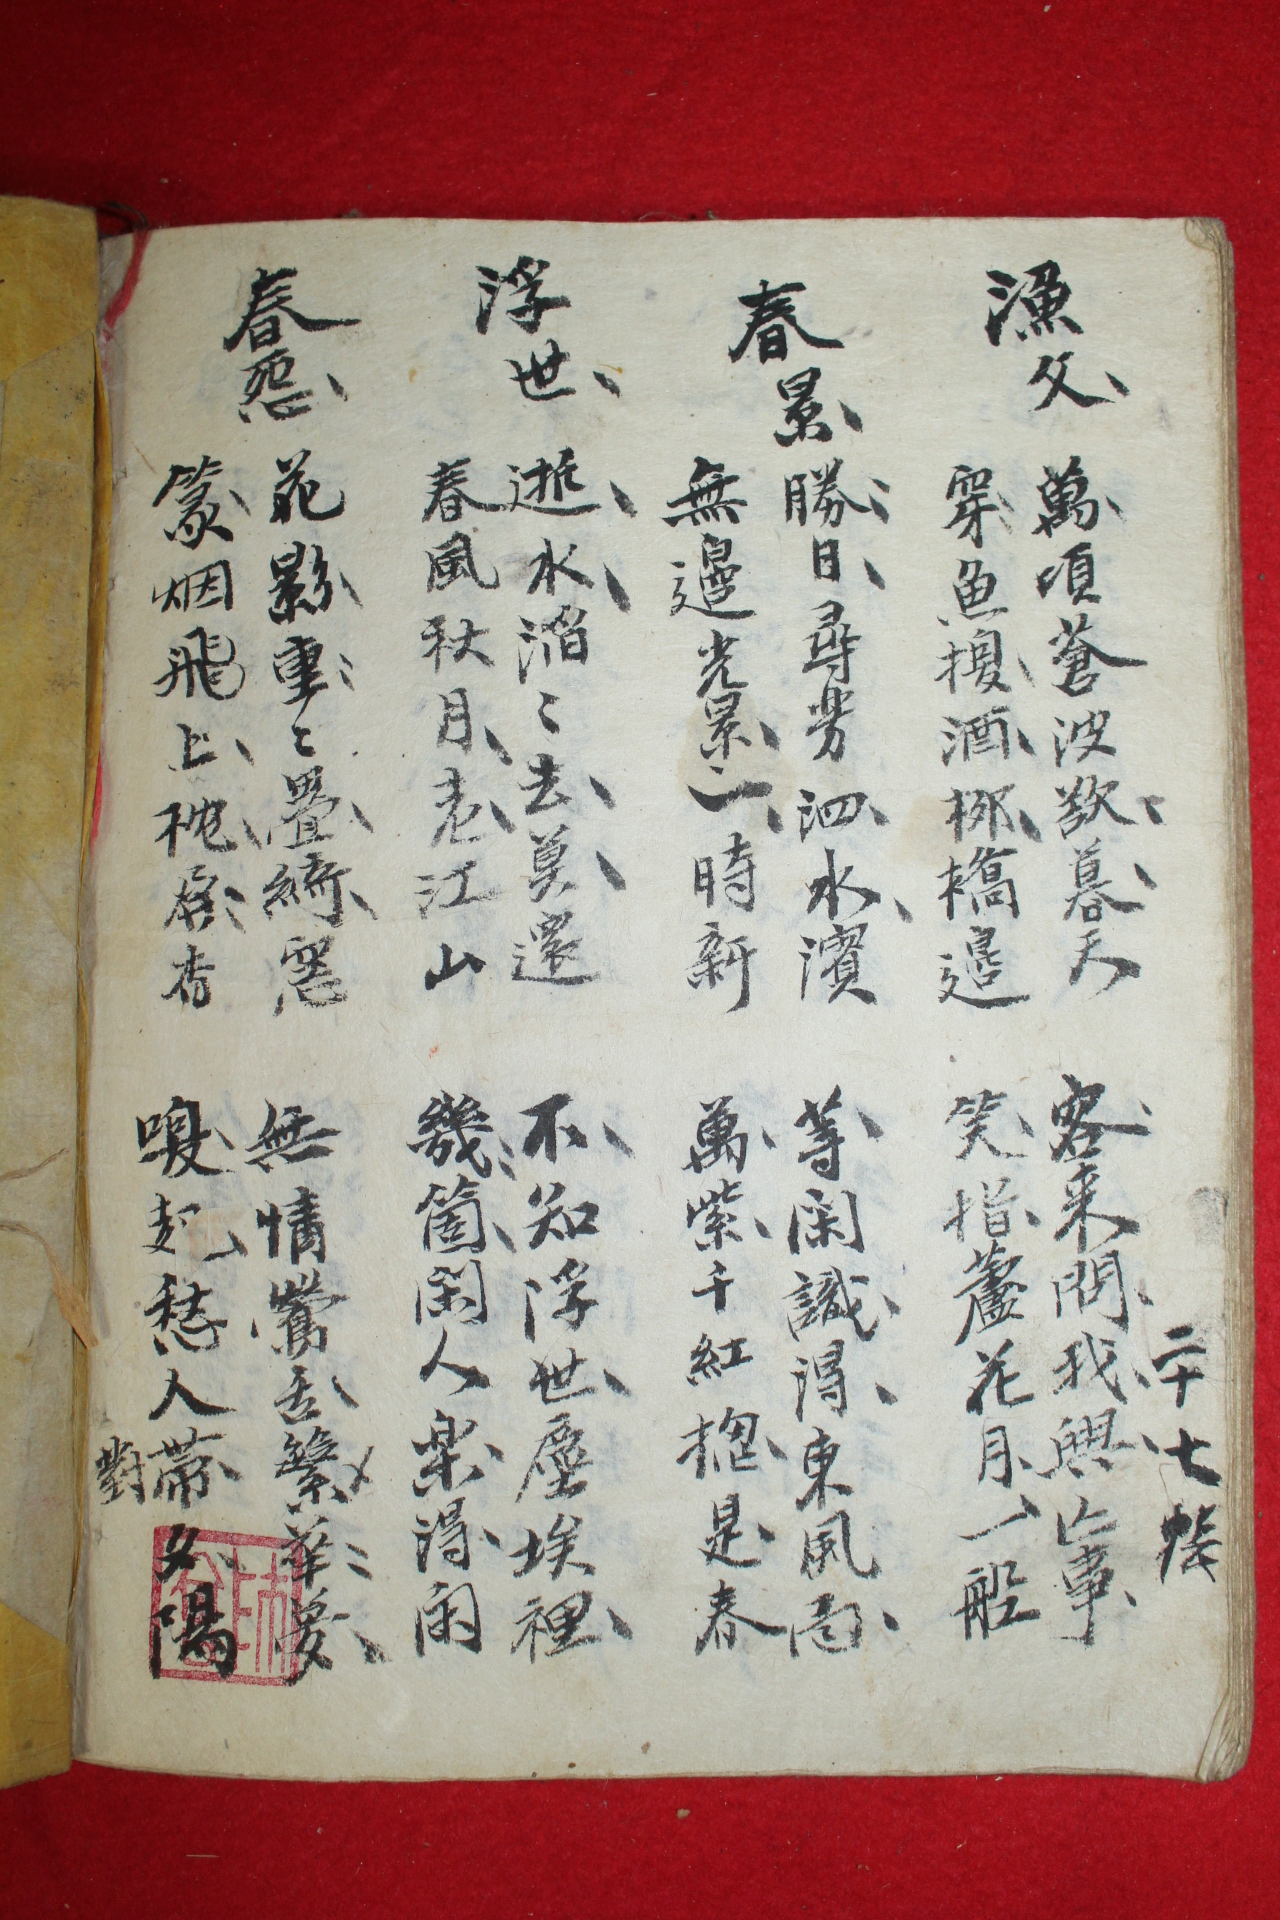 二十七帳
漁父
萬頃蒼波欲暮天
穿魚換酒柳橋邊
客來問我興亡事
笑指蘆花月一船
春景
勝日尋芳泗水濱
無邊光景一時新
等閑識得東風面
萬紫千紅摠是春
浮世
逝水滔〻去莫還
春風秋月老江山
不知浮世塵埃裡
幾箇閑人樂得閑
春怨
花影重〻疊綺窓
篆烟飛上枕屏香
無情鶯舌繁華夢
喚起愁人帶夕陽
對